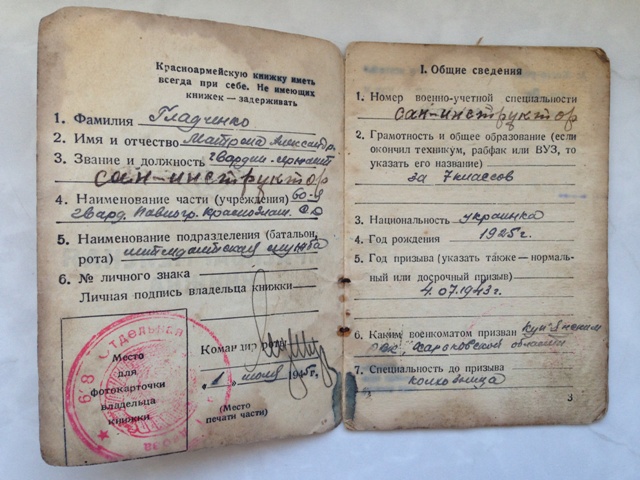 Красноармейскую книжку иметь
всегда при себе. Не имеющих
книжек — задерживать
1. Фамилия Гладченко
2. Имя и отчество Матрона Александр.
3. Звание и должность гвардии сержант
сан-инструктор
4. Наименование части (учреждения) 60-я
гвард. Павлогр. Краснознам. СД
5. Наименование подразделения (батальон,
рота)
6. № личного знака
Личная подпись владельца книжки
Место
для
фотокарточки
владельца
книжки
Командир роты
"1" июля 1945г.
(Место
печати части)
I. Общие сведения
1. Номер военно-учетной специальности
сан-инструктор
2. Грамотность и общее образование (если
окончил техникум, рабфак или ВУЗ, то
указать его название)
за 7 классов
3. Национальность украинка
4. Год рождения 1925г.
5. Год призыва (указать также — нормаль-
ный или досрочный призыв)
4.07.1943г.
6. Каким военкоматом призван Купянским
РВК, Харьковской области
7. Специальность до призыва
колхозница
3